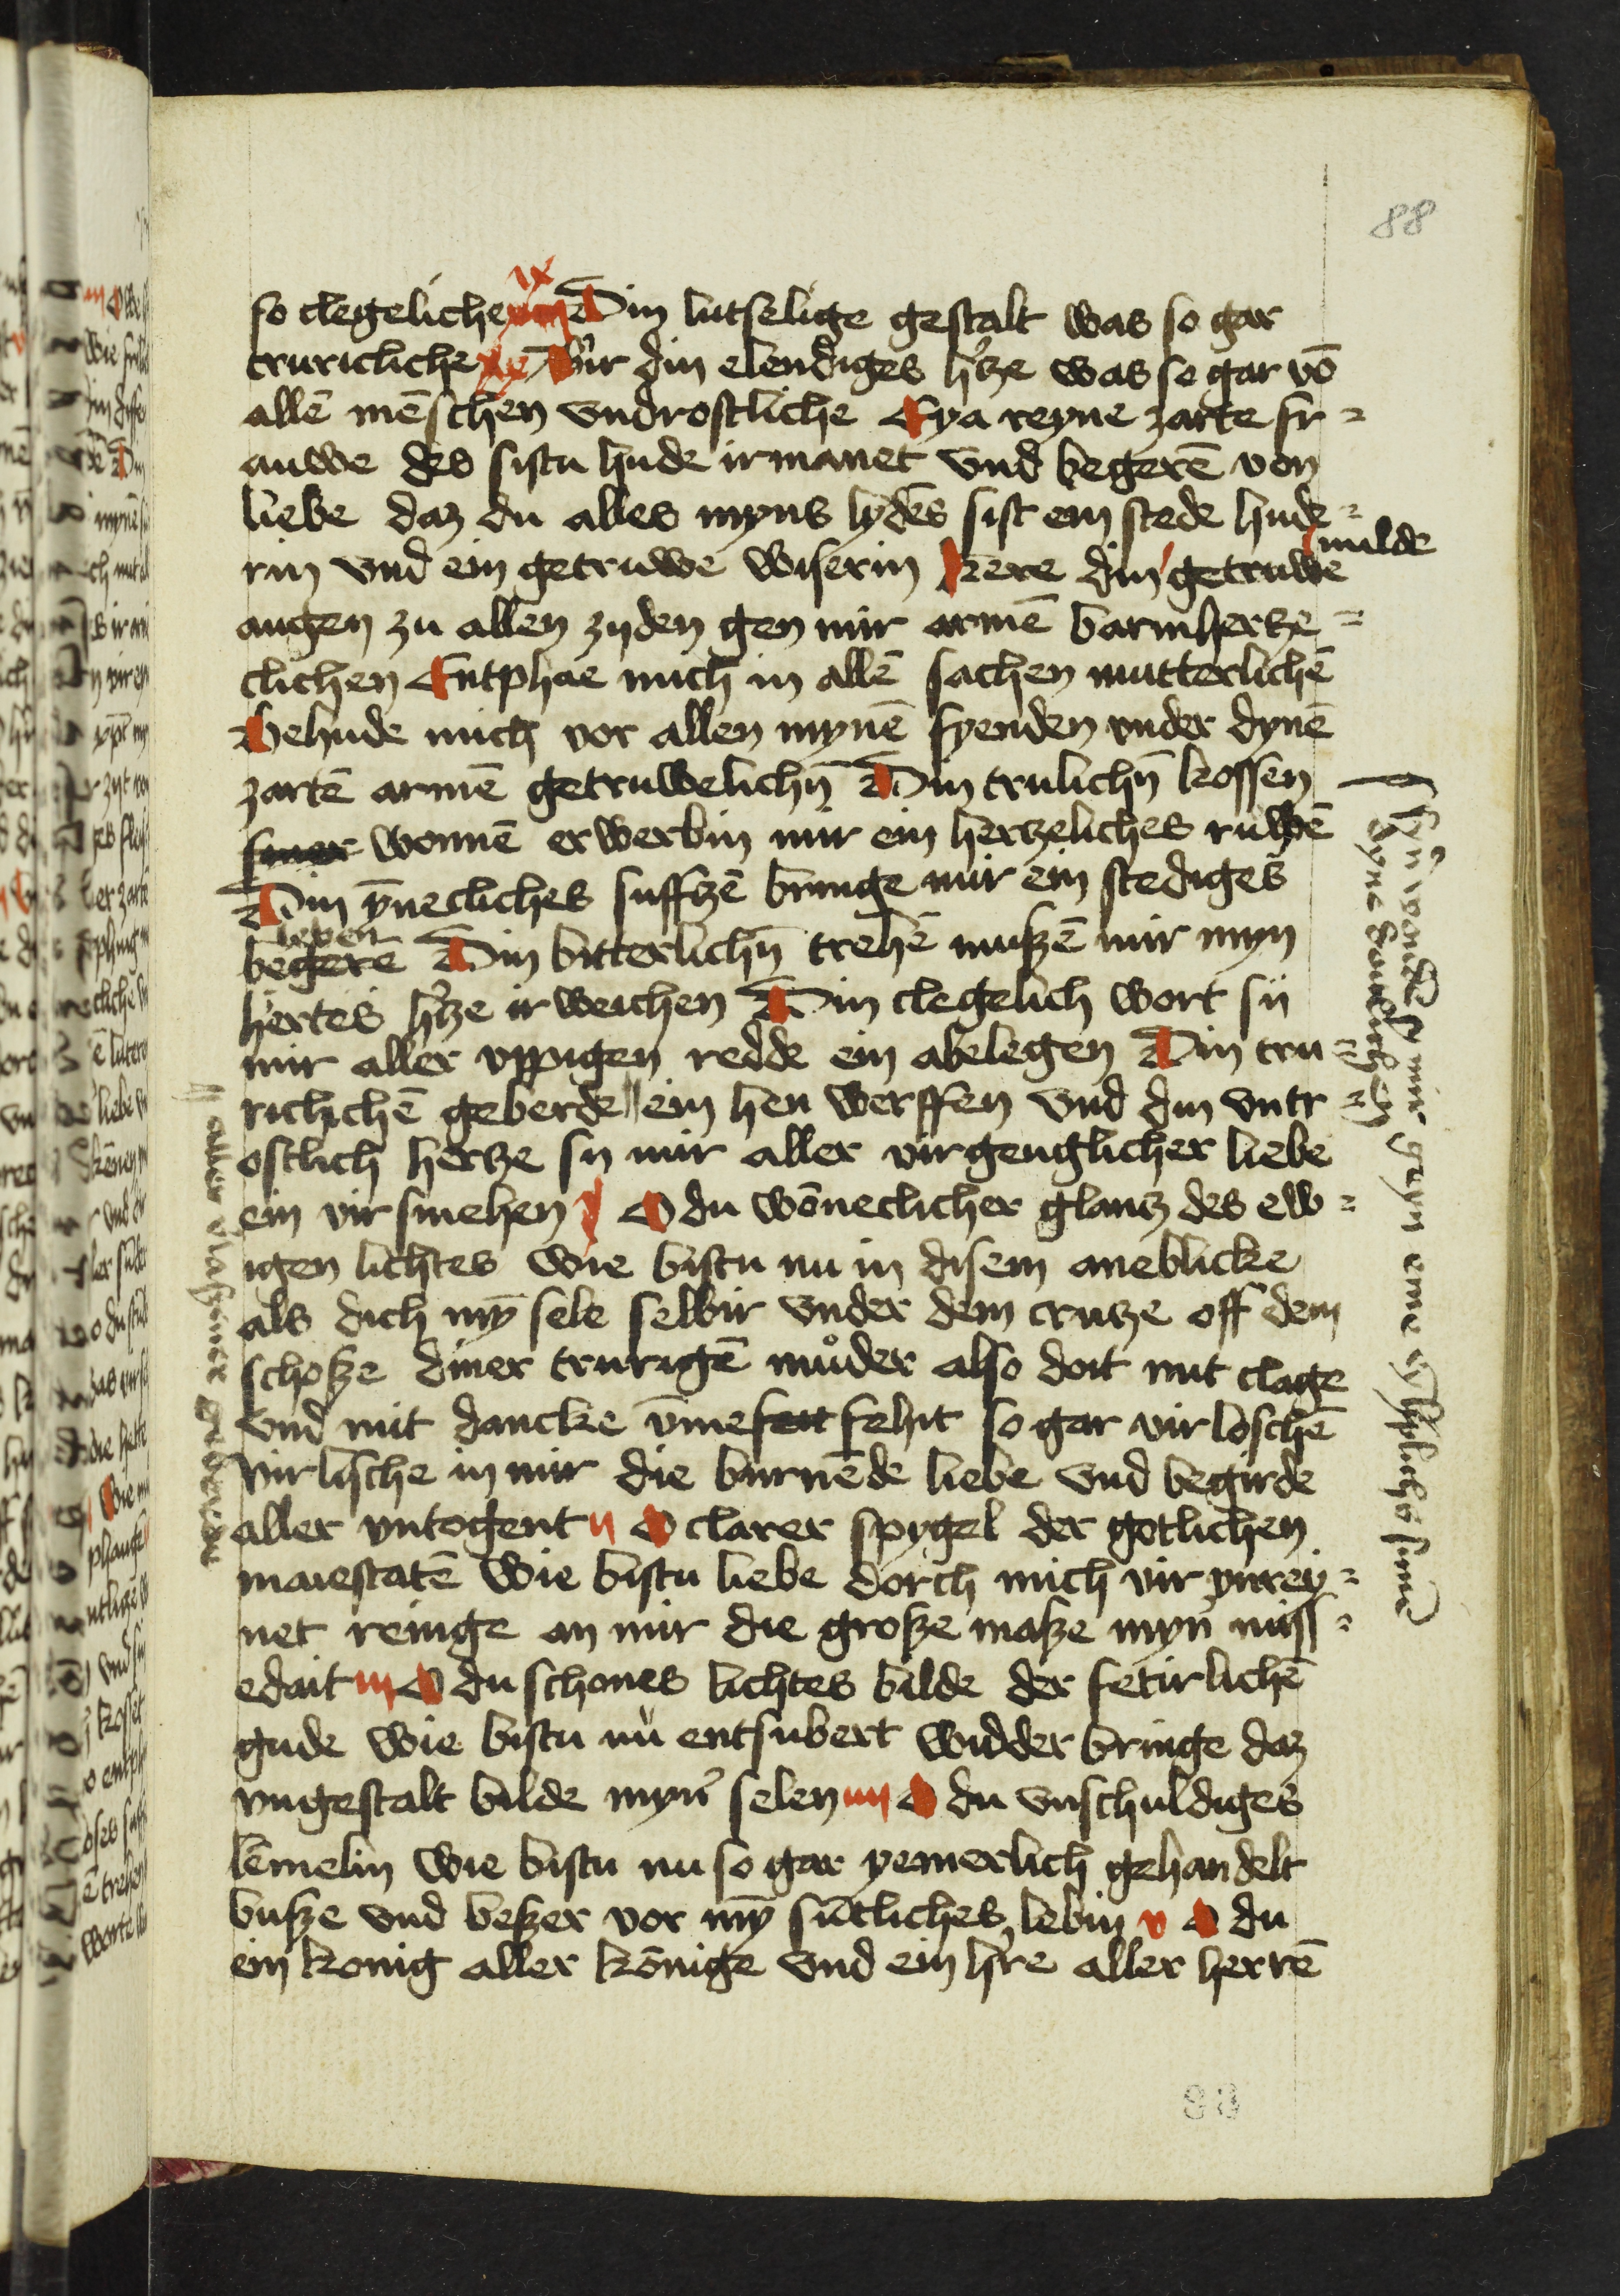 88
ix
so clegeliche Din lutselige gestalt was so gar
truricliche Wir din elendiges h'tze was so gar vō
allē mēschen vndrostliche Eya reyne zarte fr=
auwe des sistu hude irmanet vnd begerē von
liebe daz du alles myns lydēs sist ein stede hude=
rin vnd ein getruwe wiserin kēre din getruwe
milde
augen zu allen zyden gen mir armē barmhertze=
clichen Entphae mich in allē sachen mutterlichē
Behude mich vor allen mynē fyenden vnder dynē
zartē armē getruwelichn̄ Din trulichn̄ kossen
siner wonnē erwerbin mir ein hertzeliches ruwē
Din ȳnecliches suffzē bringe mir ein stediges
begerē Din bitterlichn̄ trehē muszē mir myn
hertes h'tze ir weichen Din clegelich wort sij
mir aller vppigen redde ein abelegen Din tru=
richichē geberde ein hen werffen vnd din vntr=
ostlich hertze sy mir aller virgenglicher liebe
ein vir smehen O du wōneclicher glantz des ew=
igen lichtes wie bistu nu in disem aneblicke
als dich mȳ sele selbir vnder dem crutze off dem
schosze diner trurigē muͦder also doit mit clage
vnd mit dancke vmefett fehit so gar vir loschē
Virlische in mir die burnēde liebe vnd begirde
aller vntogent ij O clarer spygel der gotlichen
maiestatē wie bistu liebe dorch mich vir vnrey=
net reinige an mir die grosze masze myn' miss=
edait iij O du schones lichtes bilde der fetirlichē
gude wie bistu nu entsubert widder bringe daz
vngestalt bilde myn' selen iiij O du vnschuldiges
lēmelin wie bistu nu so gar yemerlich gehandelt
busze vnd beszer vor mȳ sūtliches lebin v O du
ein konig aller kōnige vnd ein h're aller herrē
aller